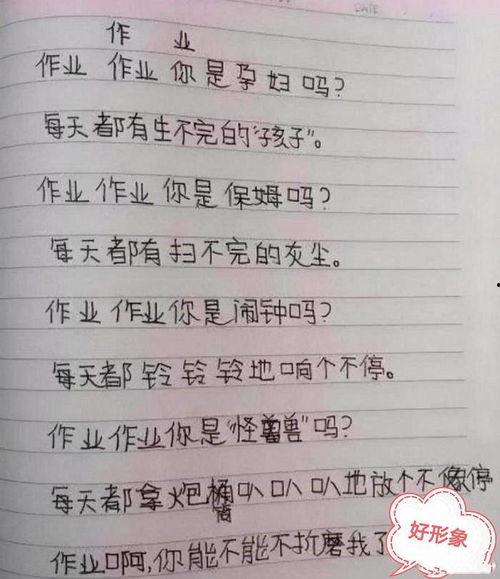 DATE
作 业
作业 作业你是孕妇吗？
每天都有生不完的“孩子”。
作业作业你是保姆吗？
每天都有扫不完的灰尘。
作业作业你是闹钟吗？
每天都铃铃铃地响个不停。
作业作业你是“怪兽”吗？
每天都拿炮筒叭叭叭地放个不停
作业啊，你能不能不折磨我了
好形象